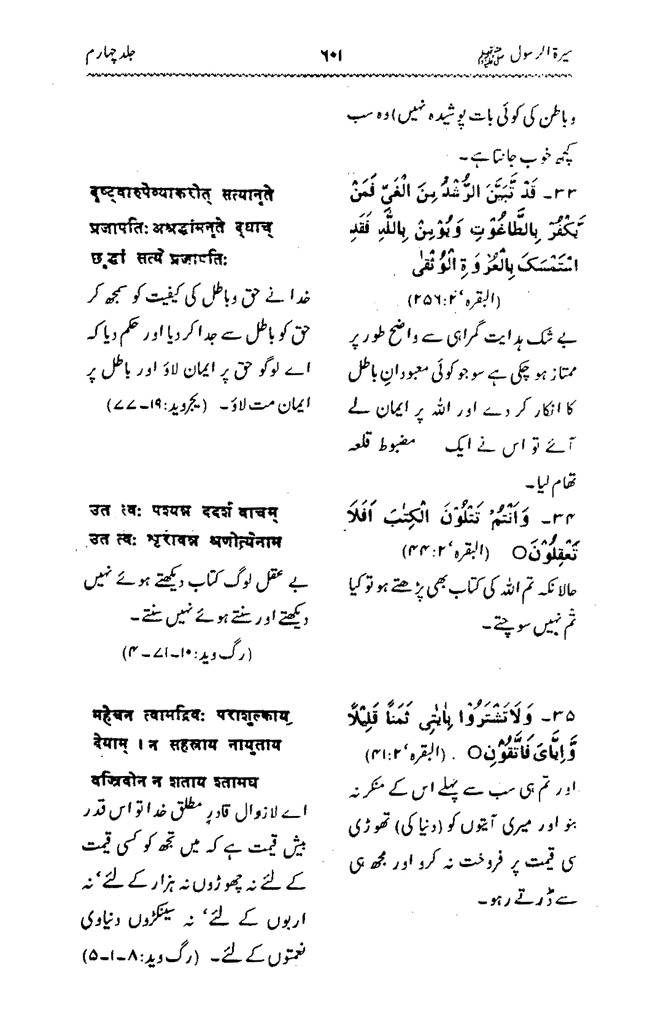 سیرۃ الرسول ﷺ
۶۰۱
جلد چہارم
و باطن کی کوئی بات پوشیدہ نہیں) وہ سب
کچھ خوب جانتا ہے۔
۳۳۔ قَدْ تَّبَيَّنَ الرُّشْدُ مِنَ الْغَيِّ فَمَنْ
يَّكْفُرْ بِالطَّاغُوْتِ وَيُؤْمِنْ بِاللّٰهِ فَقَدِ
اسْتَمْسَكَ بِالْعُرْوَةِ الْوُثْقٰى
(البقرہ ‘ ۲:۲۵۶)
بے شک ہدایت گمراہی سے واضح طور پر
ممتاز ہو چکی ہے سو جو کوئی معبودانِ باطل
کا انکار کر دے اور اللہ پر ایمان لے
آئے تو اس نے ایک مضبوط قلعہ
تھام لیا۔
दृष्ट्वारुपेव्याकरोत् सत्यानृते
प्रजापतिः अश्रद्धांमनृते दधाच्
छ्रद्धां सत्ये प्रजापतिः
خدا نے حق و باطل کی کیفیت کو سمجھ کر
حق کو باطل سے جدا کر دیا اور حکم دیا کہ
اے لوگو حق پر ایمان لاؤ اور باطل پر
ایمان مت لاؤ۔ (یجروید:۱۹۔۷۷)
۳۴۔ وَاَنْتُمْ تَتْلُوْنَ الْكِتٰبَ اَفَلَا
تَعْقِلُوْنَ○ (البقرہ ‘ ۲:۴۴)
حالانکہ تم اللہ کی کتاب بھی پڑھتے ہو تو کیا
تم نہیں سوچتے۔
उत त्वः पश्यन्न ददर्श वाचम्
उत त्वः शृरावन्न श्रणोत्येनाम
بے عقل لوگ کتاب دیکھتے ہوئے نہیں
دیکھتے اور سنتے ہوئے نہیں سنتے۔
(رگ وید:۱۰۔۷۱۔۴)
۳۵۔ وَلَا تَشْتَرُوْا بِاٰيٰتِىْ ثَمَنًا قَلِيْلًا
وَّاِيَّاىَ فَاتَّقُوْنِ○ . (البقرہ ‘ ۲:۴۱)
اور تم ہی سب سے پہلے اس کے منکر نہ
بنو اور میری آیتوں کو (دنیا کی) تھوڑی
سی قیمت پر فروخت نہ کرو اور مجھ ہی
سے ڈرتے رہو۔
महेचन त्वामद्रिवः पराशुल्काय
देयाम् । न सहस्राय नायुताय
वज्रिवोन न शताय श्तामघ
اے لازوال قادرِ مطلق خدا تو اس قدر
بیش قیمت ہے کہ میں تجھ کو کسی قیمت
کے لئے نہ چھوڑوں نہ ہزار کے لئے‘ نہ
اربوں کے لئے‘ نہ سینکڑوں دنیاوی
نعمتوں کے لئے۔ (رگ وید:۸۔۱۔۵)